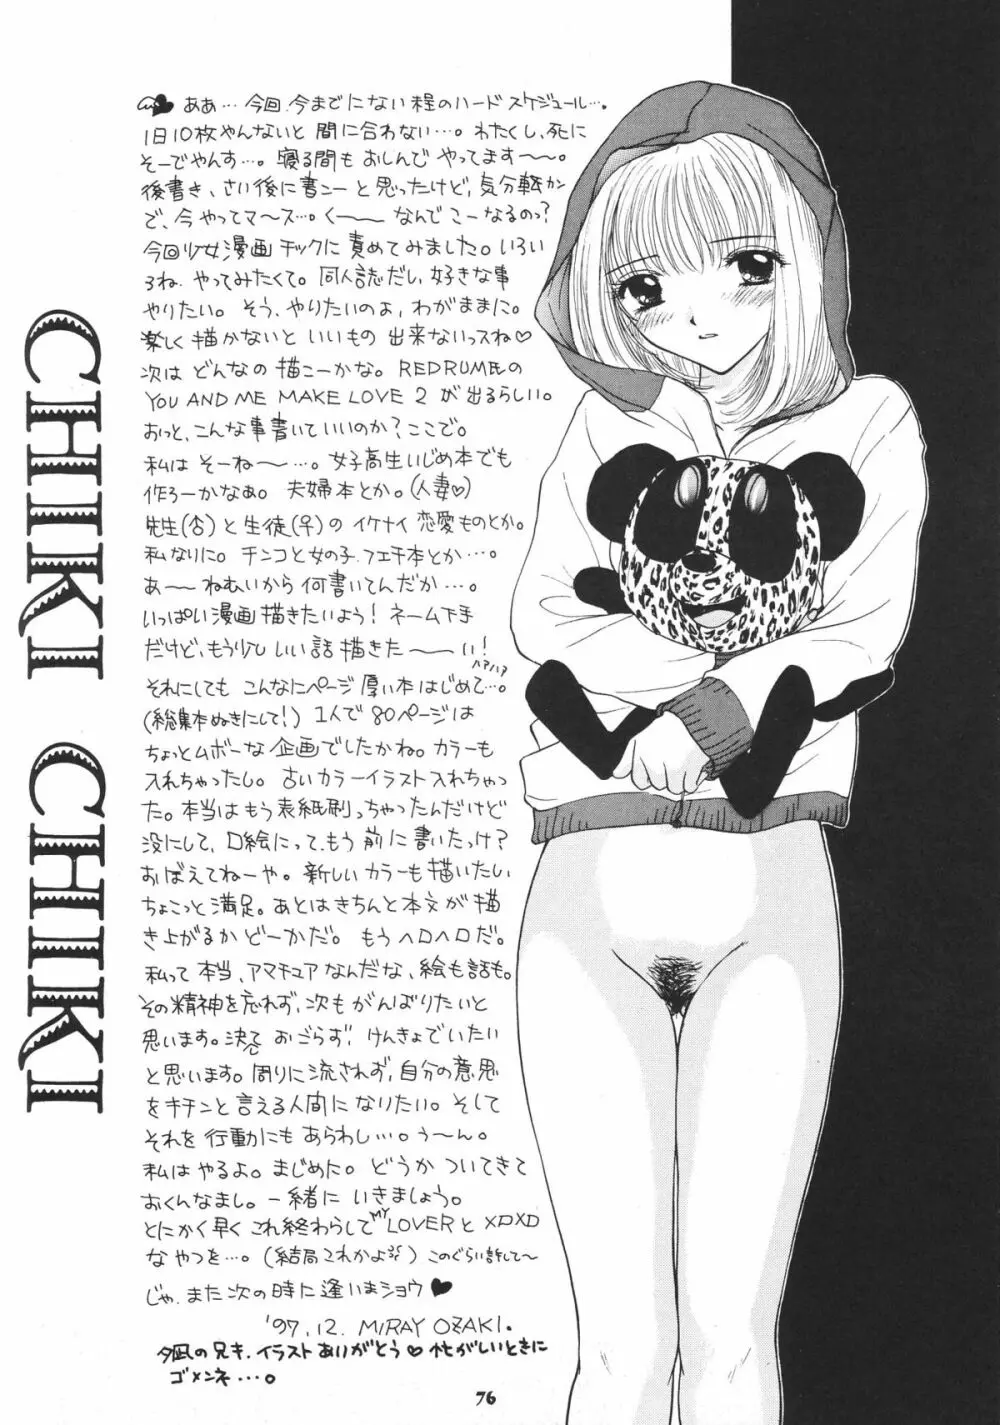 CHIKI CHIKI
ああ…今回、今までにない程のハードスケジュール…。
1日10枚やんないと間に合わない…。わたくし、死に
そーでやんす…。寝る間もおしんでやってます〜〜。
後書き、さい後に書こーと思ったけど、気分転かん
で、今やってマ〜ス…。く〜〜なんでこーなるのっ?
今回少女漫画チックに責めてみました。いろい
ろね、やってみたくて。同人誌だし、好きな事
やりたい。そう、やりたいのよ、わがままに。
楽しく描かないといいもの出来ないっスね♡
次はどんなの描こーかな。REDRUM氏の
YOU AND ME MAKE LOVE 2 が出るらしい。
おっと、こんな事書いていいのか?ここで。
私はそーね〜…。女子高生いじめ本でも
作ろーかなあ。夫婦本とか。(人妻♡)
先生(合)と生徒(♀)のイケナイ恋愛ものとか。
私なりに。チンコと女の子、フェチ本とか…。
あ〜〜ねむいから何書いてんだか…。
いっぱい漫画描きたいよう!ネーム下手
だけど、もう少しいい話描きた〜〜い!
ハアハア
それにしてもこんなにページ厚い本はじめて…。
(総集本ぬきにして!)1人で80ページは
ちょっとムボーな企画でしたかね。カラーも
入れちゃったし。古いカラーイラスト入れちゃっ
た。本当はもう表紙刷っちゃったんだけど
没にして、口絵にって、もう前に書いたっけ?
おぼえてねーや。新しいカラーも描いたし
ちょこっと満足。あとはきちんと本文が描
き上がるかどーかだ。もうヘロヘロだ。
私って本当、アマチュアなんだな、絵も話も。
その精神を忘れず、次もがんばりたいと
思います。決しておごらず、けんきょでいたい
と思います。周りに流されず、自分の意思
をキチンと言える人間になりたい。そして
それを行動にもあらわし…。う〜ん。
私はやるよ。まじめた。どうかついてきて
おくんなまし。一緒にいきましょう。
とにかく早くこれ終わらしてMY LOVERとXDXD
なやつを…。(結局これかよ)このぐらい許して〜
じゃ、また次の時に逢いまショウ♥
'97.12. MIRAY OZAKI.
夕凪の兄キ、イラストありがとう♡忙がしいときに
ゴメンネ…。
76